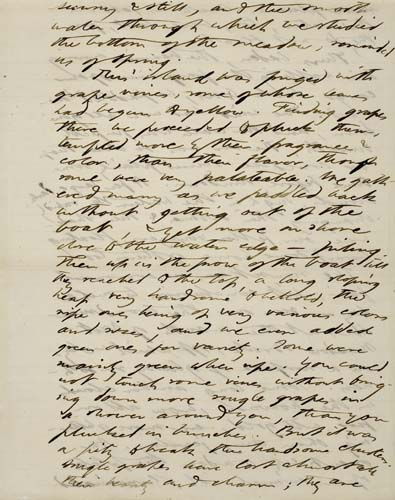 sunny & still, and the smooth
water through which we studied
the bottom of the meadow, reminded
us of spring.
This island was fringed with
grape vines, some of whose leaves
had begun to yellow. Finding grapes
there we proceeded to pluck them,
tempted more by their fragrance &
color, than their flavor, though
some were very palateable. We gath
ered many as we paddled back
without getting out of the
boat, & yet more on shore
close to the water edge — piling
them up in the prow of the boat till
they reached to the top, a long sloping
heap very handsome to behold, the
ripe ones being of very various colors
and sizes, and we even added
green ones for variety. Some were
mainly green when ripe. You could
not touch some vines without bring-
ing down more single grapes in
a shower around you, than you
plucked in bunches. But it was
a pity to break the handsome clusters
single grapes have lost almost all
their beauty and charm; they are